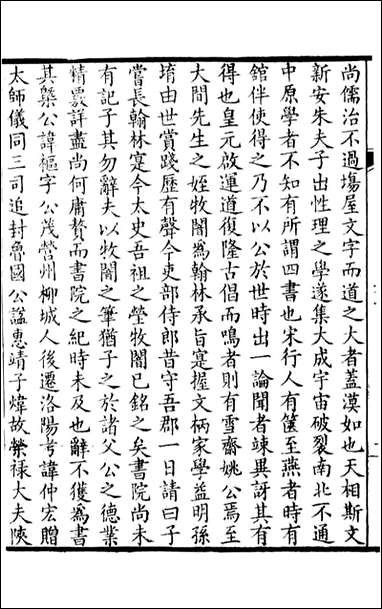 尚儒治不過塲屋文字而道之大者蓋漠如也天相斯文
新安朱夫子出性理之學遂集大成宇宙破裂南北不通
中原學者不知有所謂四書也宋行人有篋至燕者時有
館伴使得之乃不以公於世時出一論聞者竦異訝其有
得也皇元啟運道復隆古倡而鳴者則有雪齋姚公焉至
大間先生之姪牧闇爲翰林承旨寔握文柄家學益明孫
堉由世賞踐歷有聲今吏部侍郎昔守吾郡一日請曰子
嘗長翰林寔今太史吾祖之塋牧闇已銘之矣書院尚未
有記子其勿辭夫以牧闇之筆猶子之於諸父公之德業
情覈詳盡尚何庸贅而書院之紀時未及也辭不獲爲書
其槩公諱樞字公茂營州柳城人後遷洛陽考諱仲宏贈
太師儀同三司追封魯國公諡惠靖子煒故榮禄大夫陜